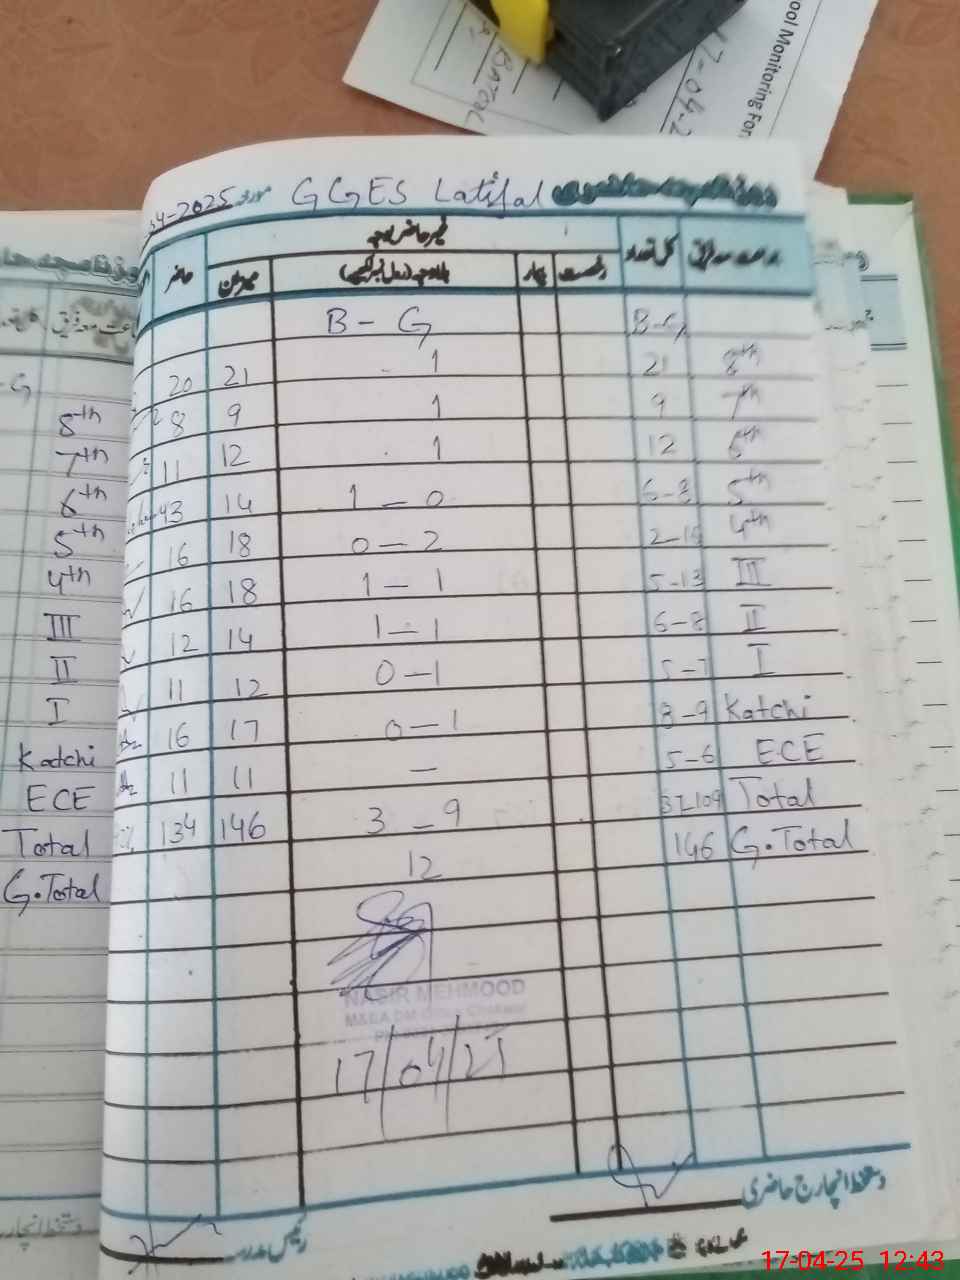 ool Monitoring For
17-04-2
BATOOL
04-2025 مورخہ GGES Latifal روزنامچہ حاضری
غیر حاضر بوجہ
حاضر میزان بلاوجہ (رول نمبر لکھیے) بیمار رخصت کل تعداد جماعت معہ فریق
B - G B-G
20 21 1 21 8th
8 9 1 9 7th
11 12 1 12 6th
13 14 1 - 0 6-8 5th
16 18 0 - 2 2-16 4th
16 18 1 - 1 5-13 III
12 14 1 - 1 6-8 II
11 12 0 - 1 5-7 I
16 17 0 - 1 8-9 Katchi
11 11 - 5-6 ECE
134 146 3 - 9 37-109 Total
12 146 G.Total
NASIR MEHMOOD
17/04/25
دستخط انچارج حاضری
رئیس مدرسہ
G
8th
7th
6th
5th
4th
III
II
I
Katchi
ECE
Total
G.Total
دستخط انچار
17-04-25 12:43